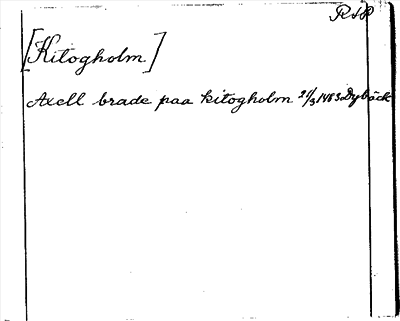 RAP
[Kitogholm]
Axell brade paa kitogholm 21/3 1483 Dybäck